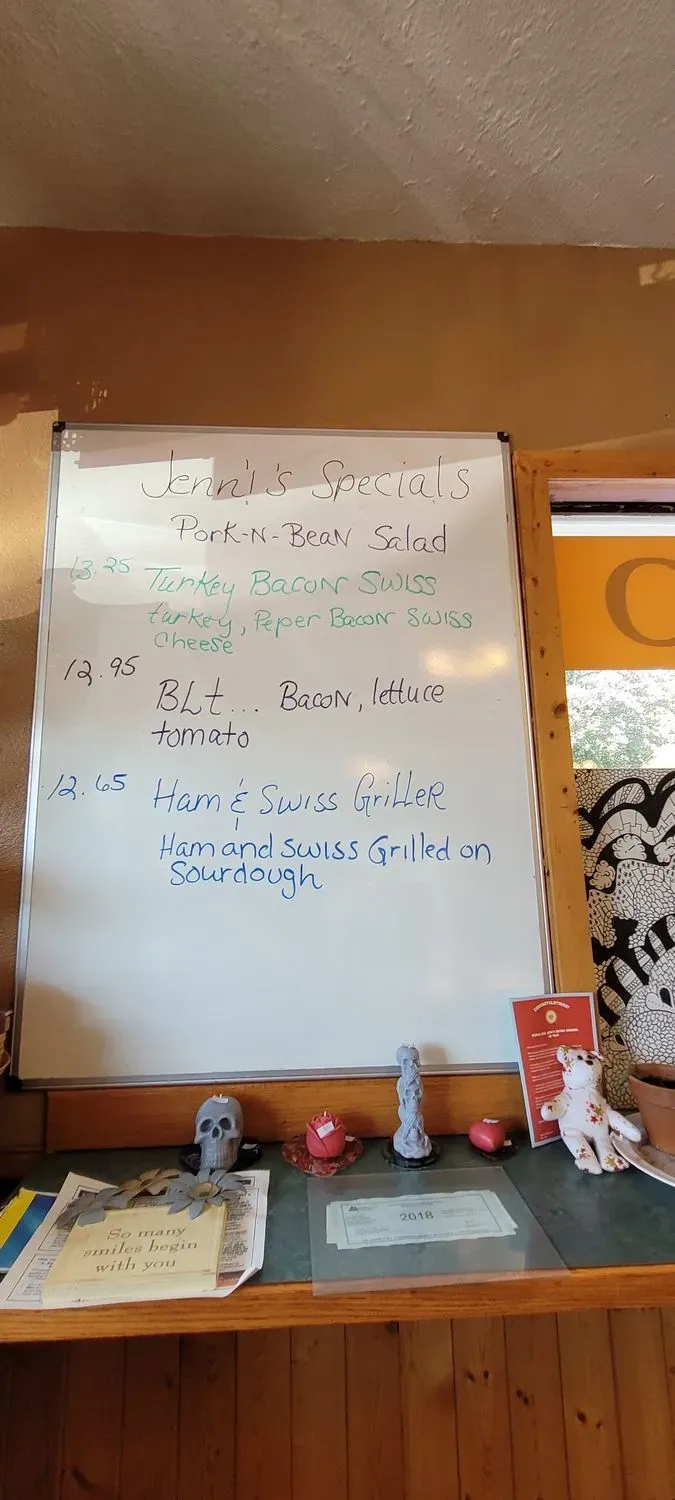 Jenni's Specials
Pork-N-Bean Salad
13.25 Turkey Bacon Swiss
turkey, Peper Bacon Swiss
Cheese
12.95
BLt... Bacon, lettuce
tomato
12.65 Ham & Swiss Griller
Ham and Swiss Grilled on
Sourdough
C
CONGRATULATIONS!
So many
smiles begin
with you
2018